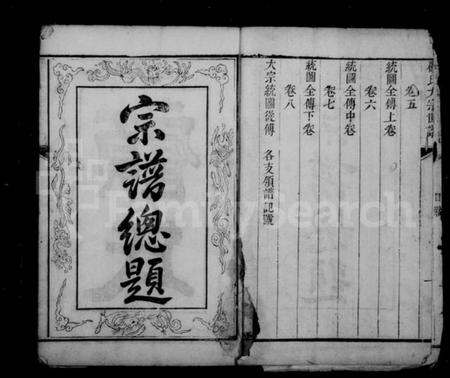 卷五
統圖全傳上卷
卷六
統圖全傳中卷
卷七
統圖全傳下卷
卷八
大宗統圖後傳 各支領譜記號
宗譜總題
FamilySearch